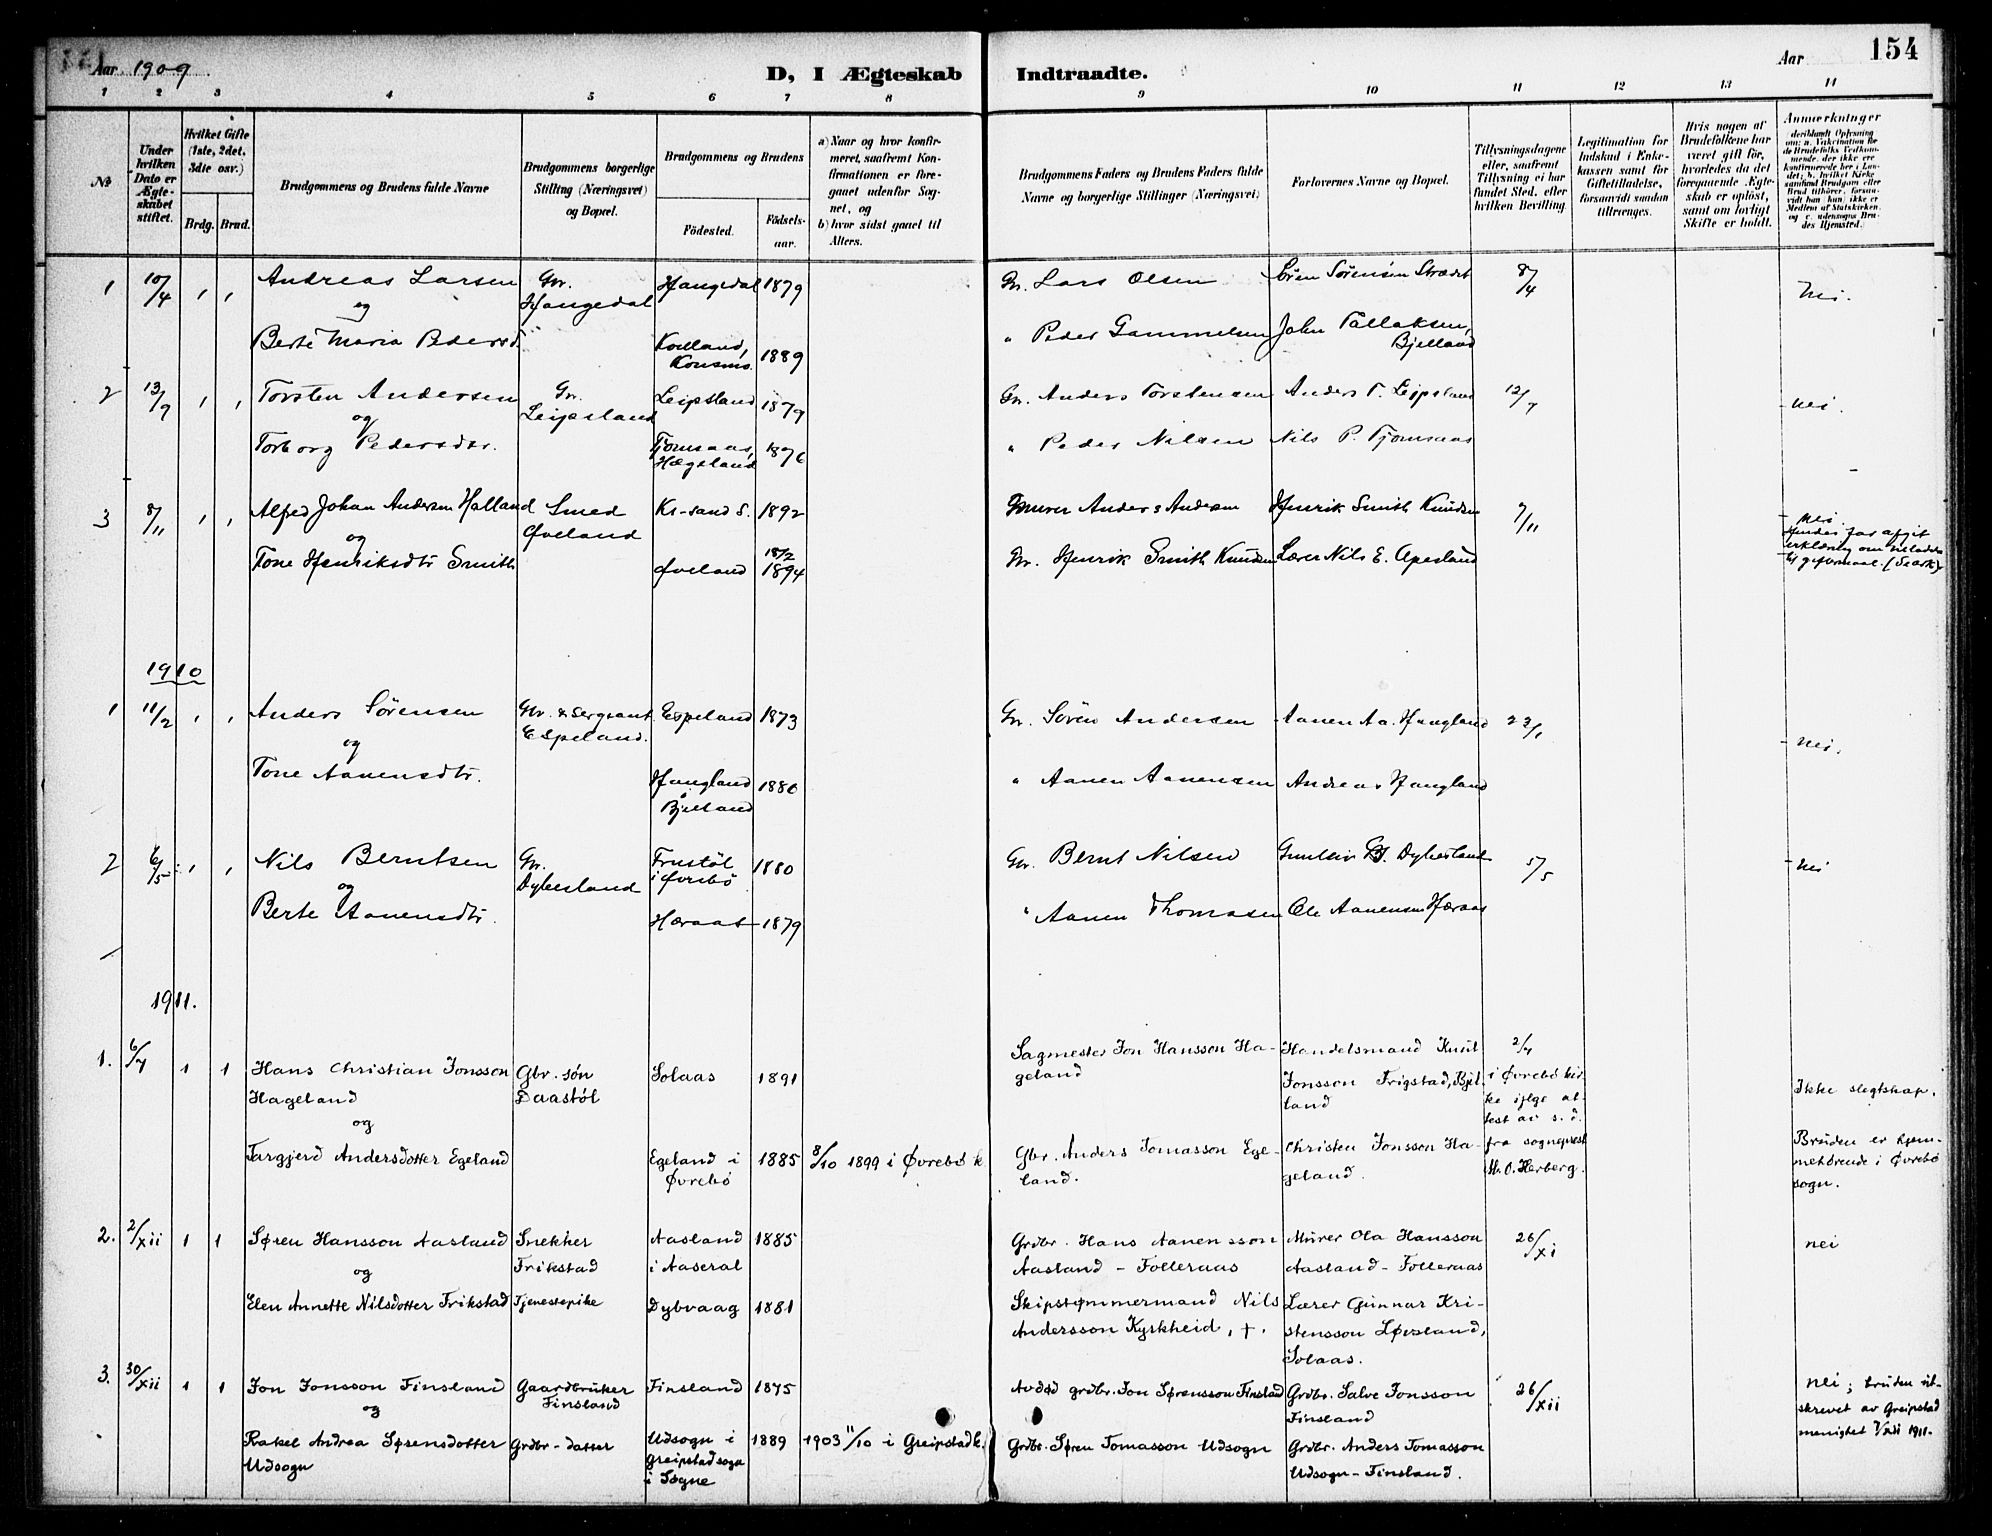 Aar 1909
D, I Ægteskab Indtraadte.
Aar
154
1 2 3 4 5 6 7 8 9 10 11 12 13 14
№
Under hvilken Dato er Ægteskabet stiftet.
Hvilket Gifte (1ste, 2det, 3die osv.)
Brdg. Brud.
Brudgommens og Brudens fulde Navne
Brudgommens borgerlige Stilling (Næringsvei) og Bopæl.
Brudgommens og Brudens
Födested.
Födselsaar.
a) Naar og hvor konfirmeret, saafremt Konfirmationen er foregaaet udenfor Sognet, og
b) hvor sidst gaaet til Alters.
Brudgommens Faders og Brudens Faders fulde Navne og borgerlige Stillinger (Næringsvei)
Forlovernes Navne og Bopæl.
Tillysningsdagene eller, saafremt Tillysning ei har fundet Sted, efter hvilken Bevilling.
Legitimation for Indskud i Enkekassen samt for Giftetilladelse, forsaavidt saadan tiltrænges.
Hvis nogen af Brudefolkene har været gift för, hvorledes da det foregaaende Ægteskab er oplöst, samt om lovligt Skifte er holdt.
Anmerkninger
1 10/4 Andreas Larsen Gbr. Haugedal Haugedal 1879 Gbr. Lars Olsen Søren Sørensen Strædet 8/4 Nei.
og
Berte Maria Pedersd. Konsmo. 1889 " Peder Gammelsen John Tallaksen, Bjelland
2 13/9 Torsten Andersen Gbr. Leipsland Leipsland 1879 Gbr. Anders Torstensen Anders T. Leipsland 12/9 nei.
og
Torborg Pedersdtr. Tjomsaas, Hægeland 1876 " Peder Nilsen Nils P. Tjomsaas
3 8/11 Alfred Johan Andersen Halland Smed Øveland Kr-sand S. 1892 Murer Anders Andersen Henrik Smith Knudsen 7/11 nei.
og
Tone Henriksdtr Smith Øveland 18/2 1894 Gbr. Henrik Smith Knudsen Lærer Nils E. Apesland
1910
1 11/2 Anders Sørensen Gbr. & Sergeant Espeland. Espeland 1873 Gbr. Søren Andersen Aanen Aa. Haugland 23/1 nei.
og
Tone Aanensdtr. Haugland Bjelland 1880 " Aanen Aanensen Andreas Haugland
2 6/5 Nils Berntsen Gbr. Dybesland Frustøl i Øvrebø 1880 Gbr. Bernt Nilsen Gunlleiv B. Dybesland 5/5 nei
og
Berte Aanensdtr. Heraas 1879 " Aanen Thomasen Ole Aanensen Heraas
1911.
1. 6/7 1 1 Hans Christian Jonsson Hageland Gbr. søn Daastøl Solaas 1891 Sagmester Jon Hansson Hageland Handelsmand Knut Jonsson Frigstad, Bjelland 2/7 i Øvrebø kirke ifølge attest av s. d. fra sogneprest M. O. Herberg. Ikke slegtskap.
og
Targjerd Andersdotter Egeland Egeland i Øvrebø 1885 8/10 1899 i Øvrebø k. Gbr. Anders Tomasson Egeland. Christen Jonsson Hageland. Bruden er hjemmehørende i Øvrebø sogn.
2. 2/xii 1 1 Søren Hansson Aasland Snekker Frikstad Aasland i Aaseral 1885 Grdbr. Hans Aanensson Aasland - Folleraas Murer Ola Hansson Aasland - Folleraas 26/xi nei
og
Elen Annette Nilsdotter Frikstad Tjenestepike Dybvaag 1881 Skipstømmermand Nils Andersson Kyrkheid, +. Lærer Gunnar Kristensson Løvsland, Solaas.
3. 30/xii 1 1 Jon Jonsson Finsland Gaardbruker Finsland Finsland 1875 Avdød grdbr. Jon Sørensson Finsland Grdbr. Salve Jonsson Finsland 26/xii nei; bruden utskrevet av Greipstad menighet 7/xii 1911.
og
Rakel Andrea Sørensdotter Udsogn Grdbr-datter Udsogn i Greipstad sogn i Søgne 1889 1903 11/10 i Greipstad k. Grdbr. Søren Tomasson Udsogn Grdbr. Anders Tomasson Udsogn - Finsland.